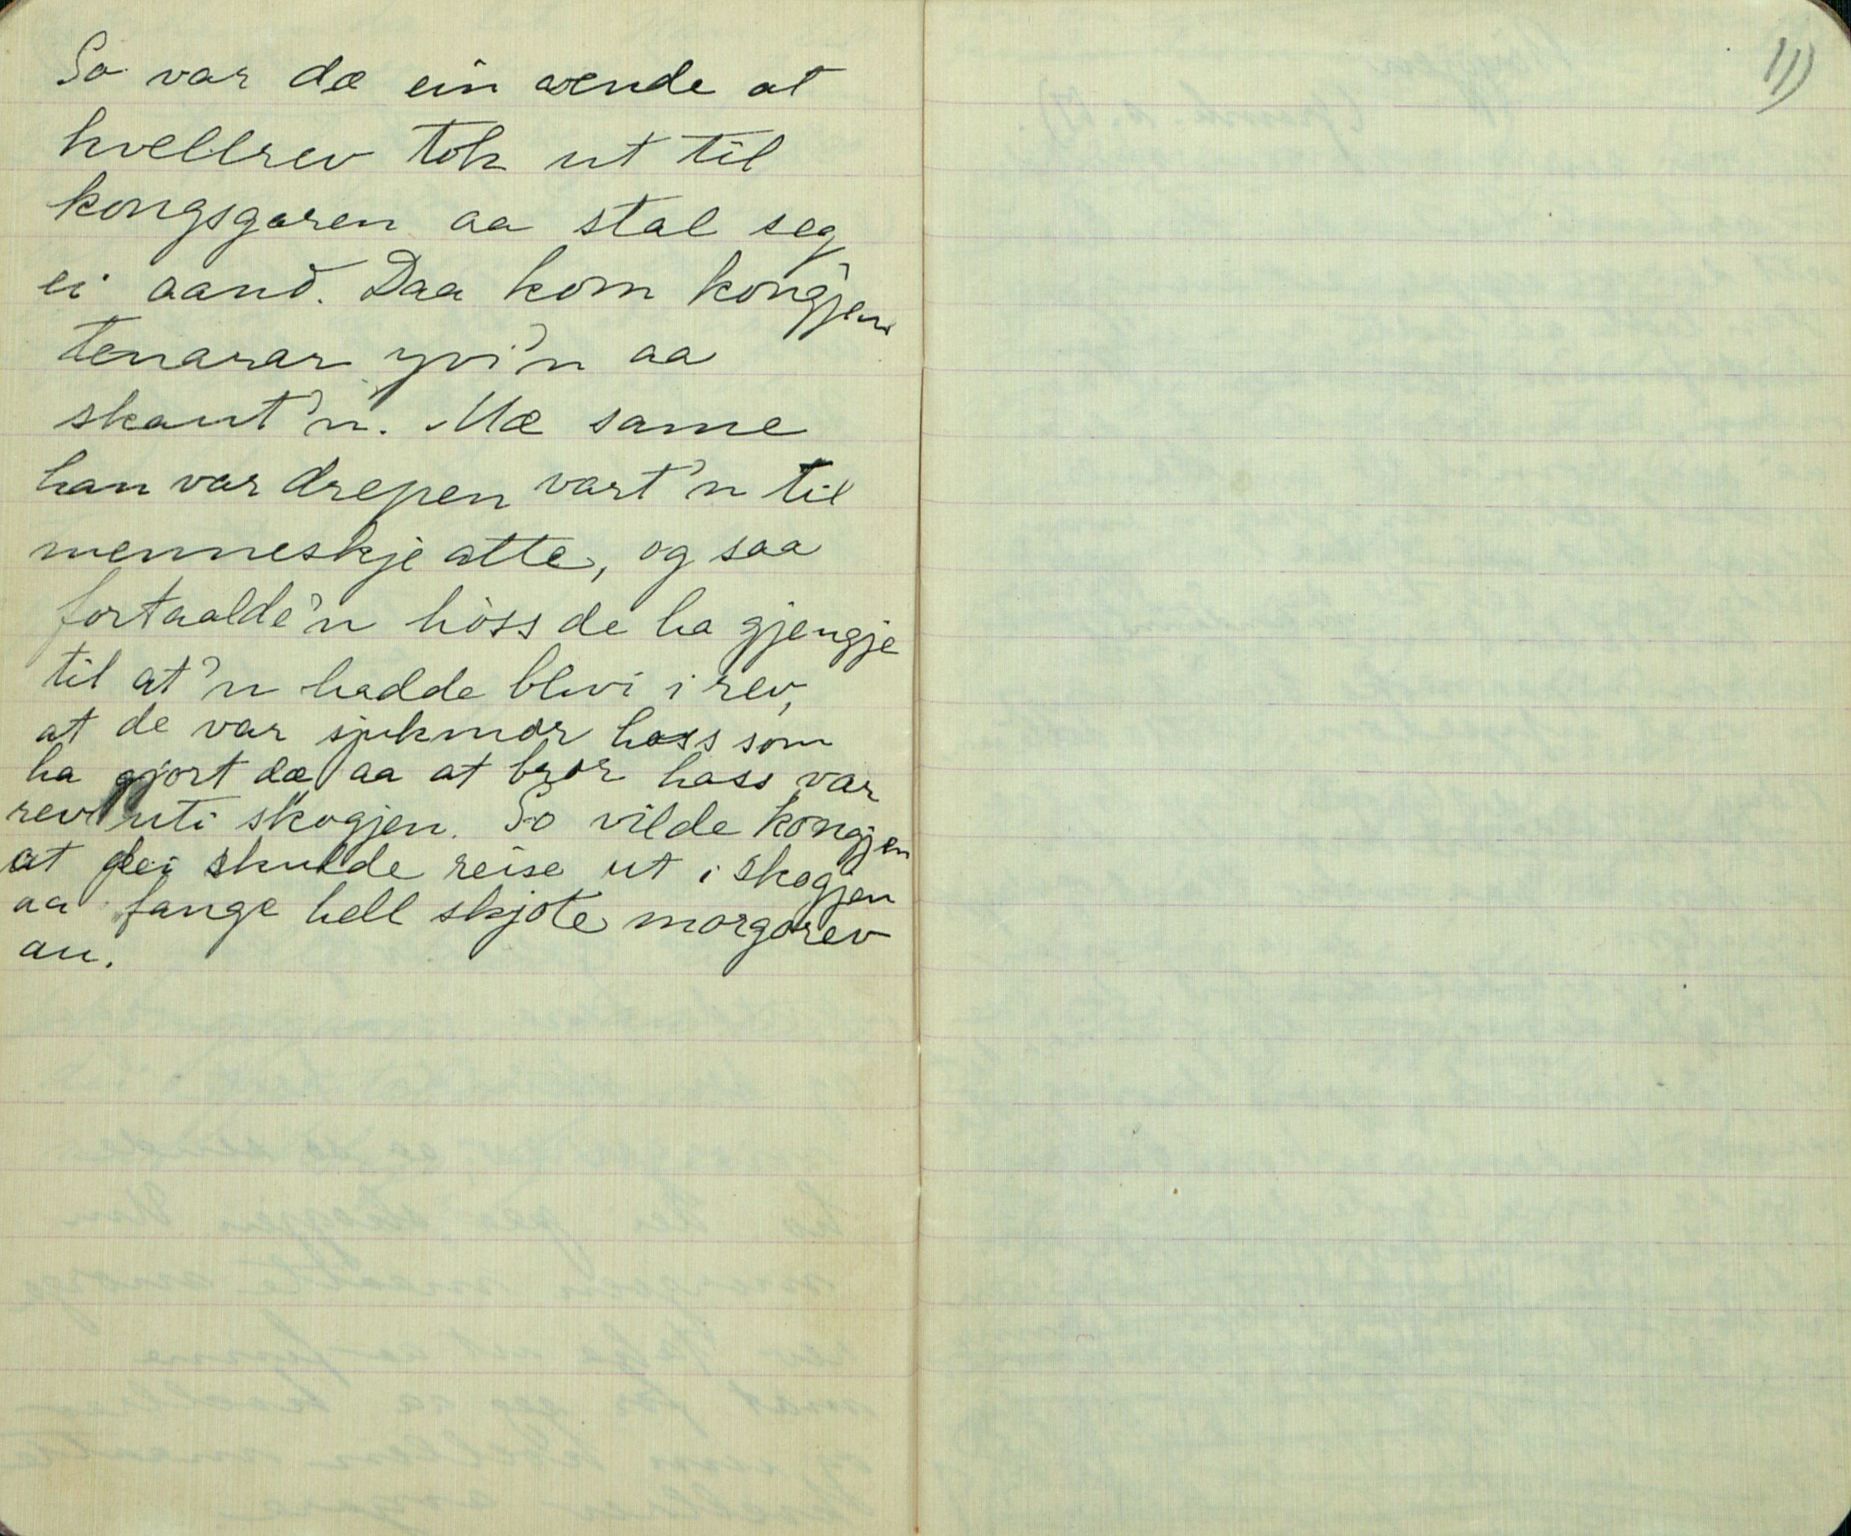 So var dæ ein aende at
kvellrev tok ut til
kongsgaren aa stal seg
ei aand. Daa kom kongjen
tenarar yvi'n aa
skaut'n. Mæ same
han var drepen vart'n til
menneskje atte, og saa
fortaalde'n hòss de ha gjengje
til at'n hadde blivi i rev,
at de var sjukmor hass som
ha gjort dæ aa at bror hass var
rev uti skogjen. So vilde kongjen
at dei skulde reise ut i skogjen
aa fange hell skjote morgorev
au.
111